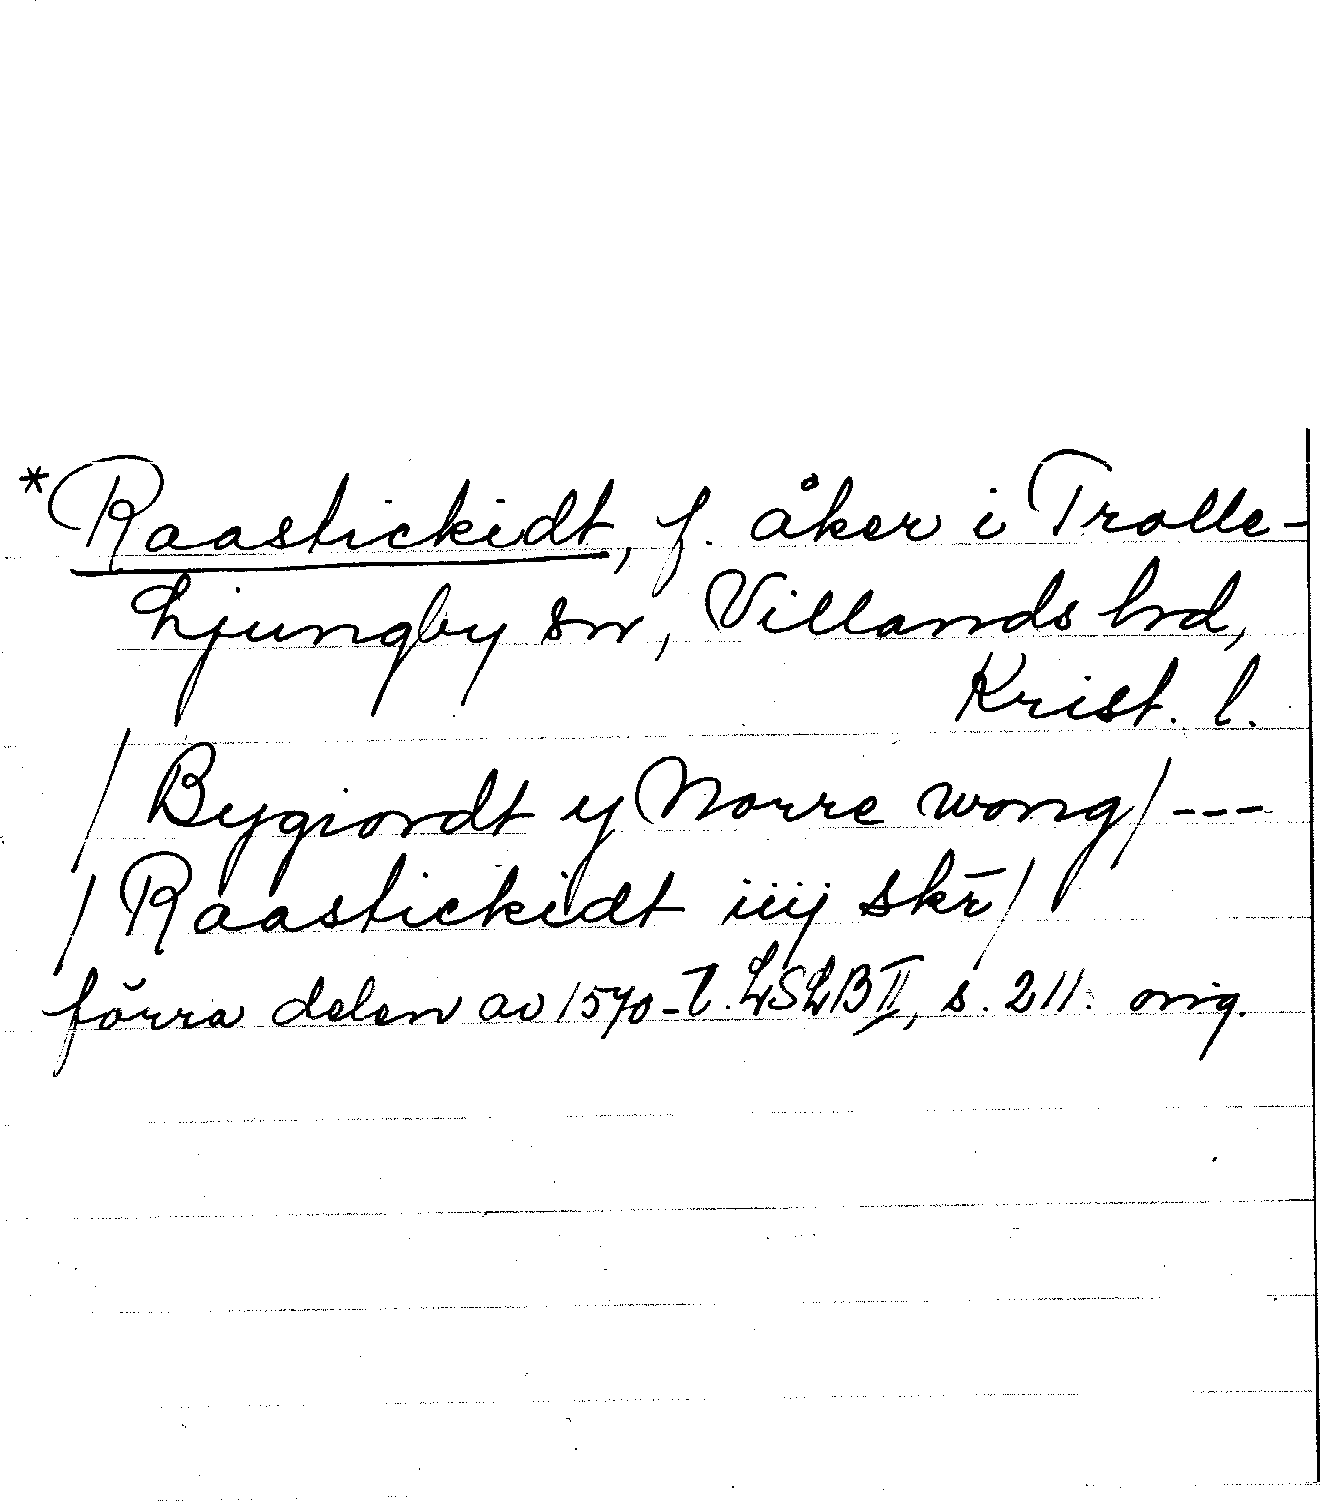 *Raastickidt, f. åker i Trolle-
Ljungby sn, Villands hrd,
Krist. l.
/Bygiordt y Norre wong/ ---
/Raastickidt iiij skr̄/
förra delen av 1570-t. LSLB II, s. 211. orig.